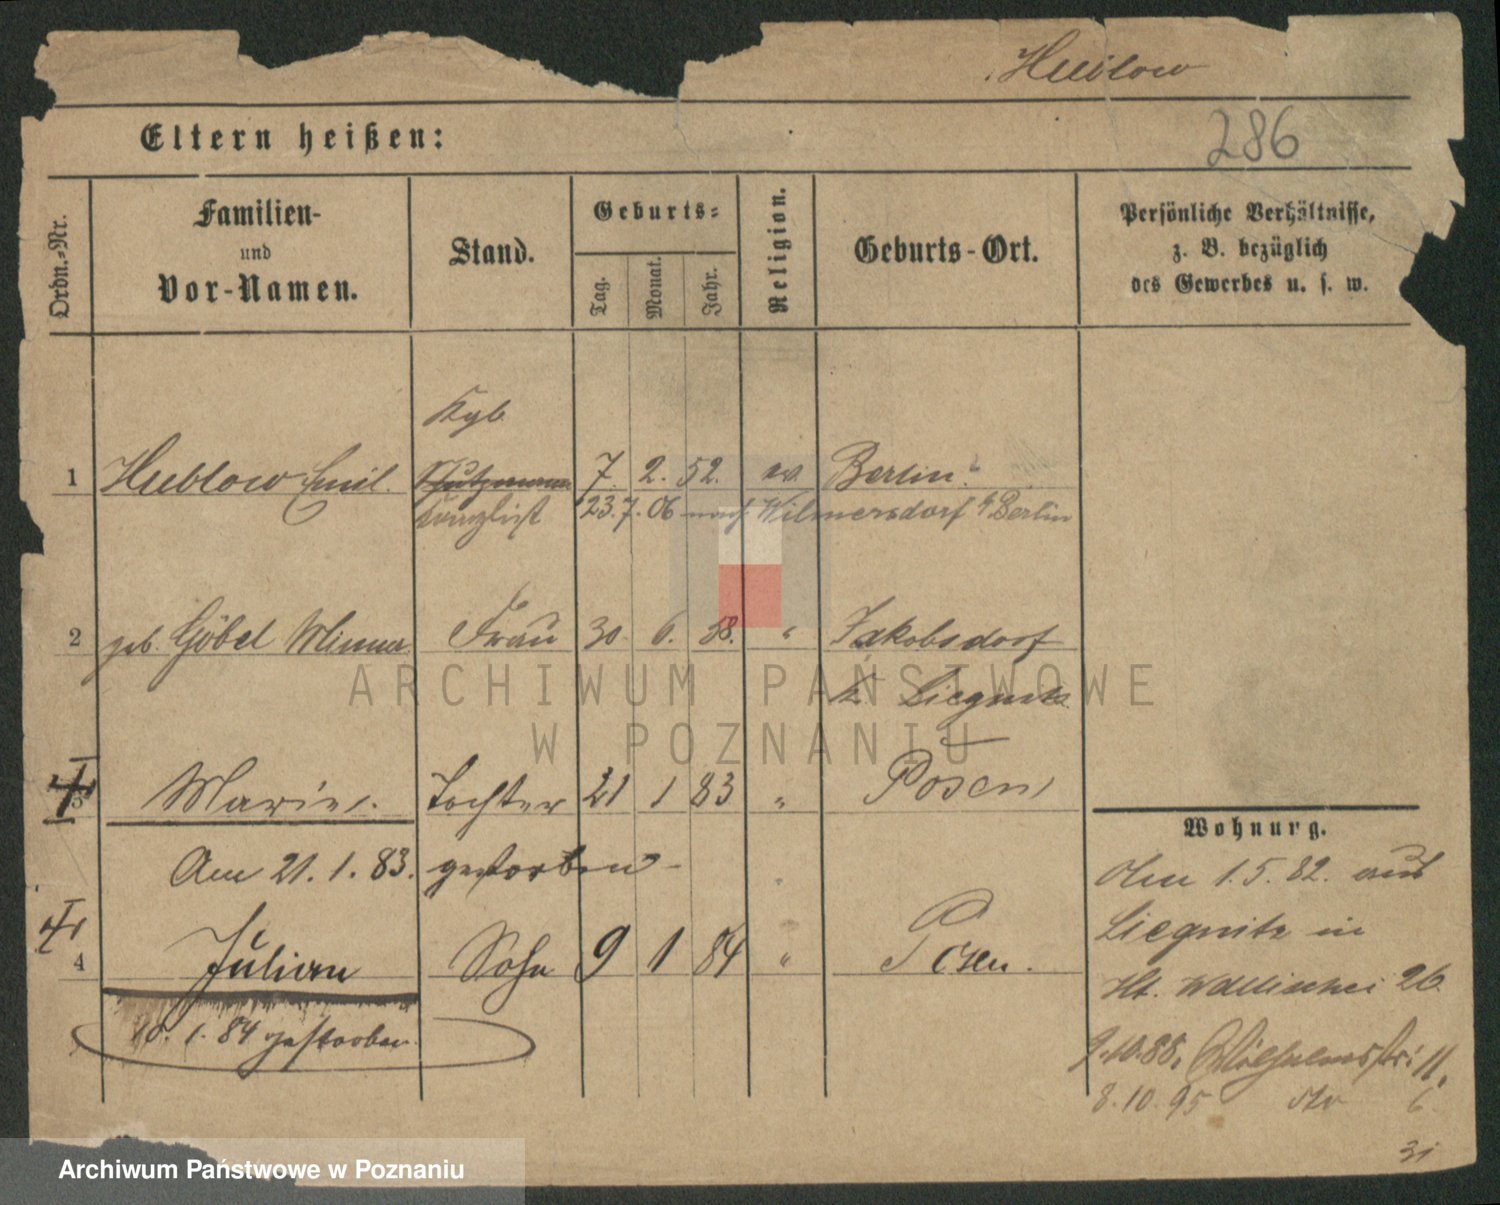 Hueblow
286
Eltern heißen:
Ordn.-Nr.
Familien-
und
Vor-Namen.
Stand.
Geburts-
Tag.
Monat.
Jahr.
Religion.
Geburts-Ort.
Persönliche Verhältnisse,
z. B. bezüglich
des Gewerbes u. s. w.
Kgl.
1 Hueblow Emil. Schutzmann 7. 2. 52. ev. Berlin.
Kanzlist 23.7.06 nach Wilmersdorf b/Berlin
2 geb. Göbel Minna Frau 30. 6. 58. " Jakobsdorf
K. Liegnitz
Marie. Tochter 21 1 83 " Posen
Am 21. 1. 83. gestorben
4 Julian Sohn 9 1 84 " Posen.
10. 1. 84 gestorben
Wohnung.
Am 1. 5. 82. aus
Liegnitz in
Wallischei 26.
9.10.88. Wilhelmstr. 11.
8.10.95 6
31
ARCHIWUM PAŃSTWOWE
W POZNANIU
Archiwum Państwowe w Poznaniu